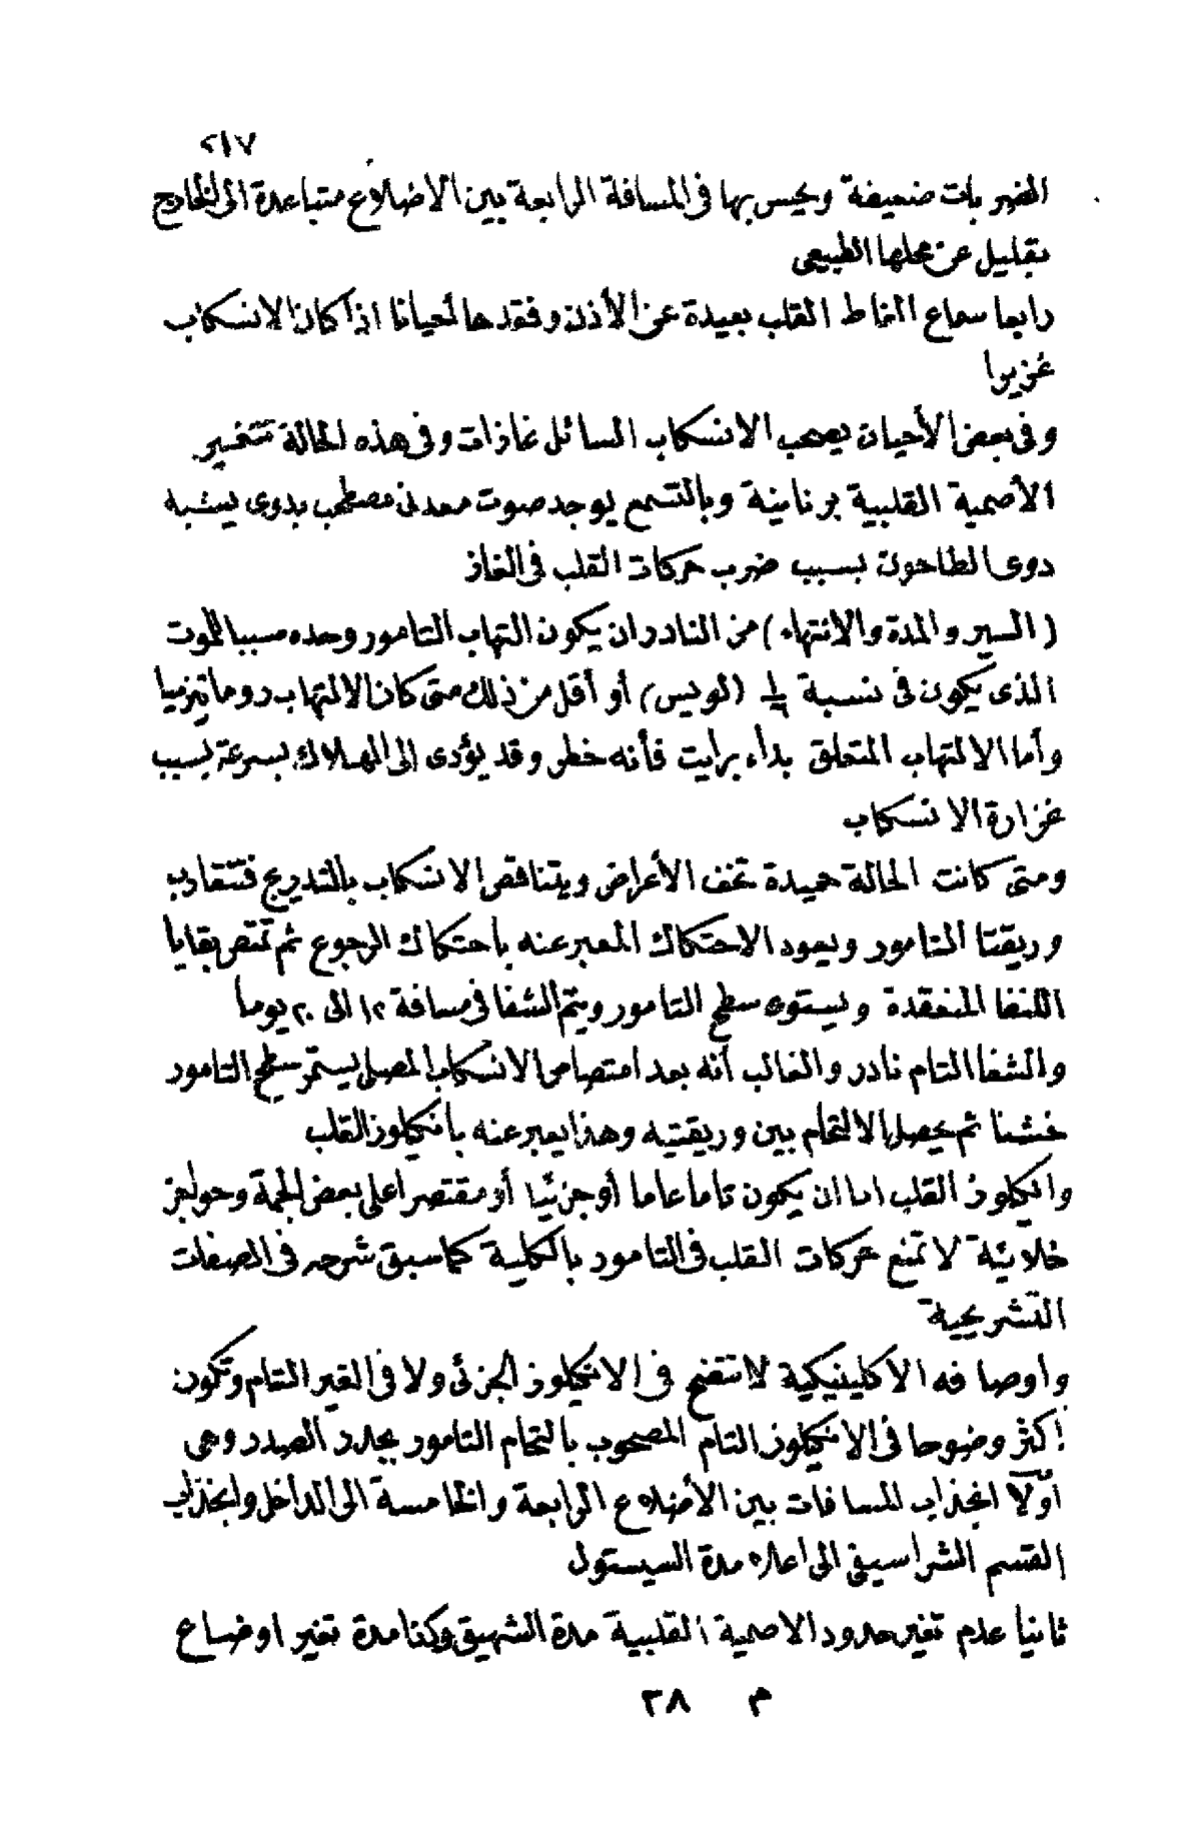 ٢١٧
الضربات ضعيفة ويحس بها فى المسافة الرابعة بين الاضلاع متباعدة الى الخارج
بقليل عن محلها الطبيعى
رابعا سماع القاط القلب بعيدة عن الأذن وفقدها أحيانا اذا كان الانسكاب
غزيرا
وفى بعض الأحيان يصحب الانسكاب السائل غازات وفى هذه الحالة تتغير
الأصمية القلبية برنانية وبالتسمع يوجد صوت معدنى مصطحب بدوى يشبه
دوى الطاحون بسبب ضرب حركات القلب فى الغاز
(السير والمدة والانتهاء) من النادر ان يكون التهاب التامور وحده سببا للموت
الذى يكون فى نسبة ١/٦ (لويس) أو أقل من ذلك متى كان الالتهاب روماتيزميا
وأما الالتهاب المتعلق بداء برايت فأنه خطر وقد يؤدى الى الهلاك بسرعة بسبب
غزارة الانسكاب
ومتى كانت الحالة حميدة تخف الأعراض ويتناقص الانسكاب بالتدريج فتتقارب
وريقتا التامور ويعود الاحتكاك المعبر عنه باحتكاك الرجوع ثم تمتص بقايا
اللنفا المنعقدة ويستوى سطح التامور ويتم الشفا فى مسافة ١٢ الى ٢٠ يوما
والشفا التام نادر والغالب أنه بعد امتصاص الانسكاب المصلى يستمر سطح التامور
خشنا ثم يحصل الالتحام بين وريقتيه وهذا يعبر عنه بانكيلوز القلب
وانكيلوز القلب اما ان يكون تاما عاما أو جزئيا أو مقتصرا على بعض الجمة وحواجز
خلائية لا تمنع حركات القلب فى التامور بالكلية كما سبق شرحه فى الصفات
التشريحية
وأوصافه الاكلينيكية لا تتضح فى الانكيلوز الجزئى ولا فى الغير التام وتكون
أكثر وضوحا فى الانكيلوز التام المصحوب بالتحام التامور بجدر الصدر وهى
أولا انجذاب المسافات بين الأضلاع الرابعة والخامسة الى الداخل وانجذاب
القسم الشراسيفى الى اعلاه مدة السيستول
ثانيا عدم تغير حدود الاصمية القلبية مدة الشهيق وكذا مدة تغير اوضاع
م ٢٨